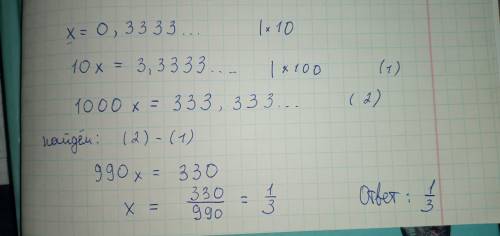 x = 0,3333... | × 10
10x = 3,3333... | × 100 (1)
1000x = 333,333... (2)
найдём: (2) - (1)
990x = 330
x = 330/990 = 1/3 Ответ: 1/3